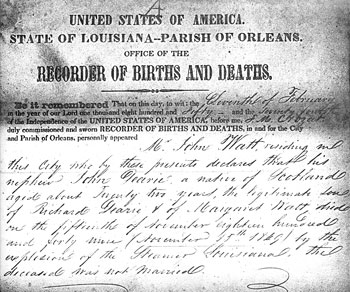 UNITED STATES OF AMERICA.
STATE OF LOUISIANA--PARISH OF ORLEANS.
OFFICE OF THE
RECORDER OF BIRTHS AND DEATHS.
Be it remembered That on this day, to wit: the Eleventh of February
in the year of our Lord one thousand eight hundred and Fifty and the
of the Independence of the UNITED STATES OF AMERICA, before me,
duly commissioned and sworn RECORDER OF BIRTHS AND DEATHS, in and for the City
and Parish of Orleans, personally appeared
Mr John Watt residing in
this City who by these presents declares that his
nephew John Dearie, a native of Scotland
aged about Twenty two years the legitimate son
of Richard Dearie & of Margaret Watt, died
on the fifteenth of November eighteen hundred
and forty nine (November 15th 1849) by the
explosion of the Steamer Louisiana, the
deceased was not married.